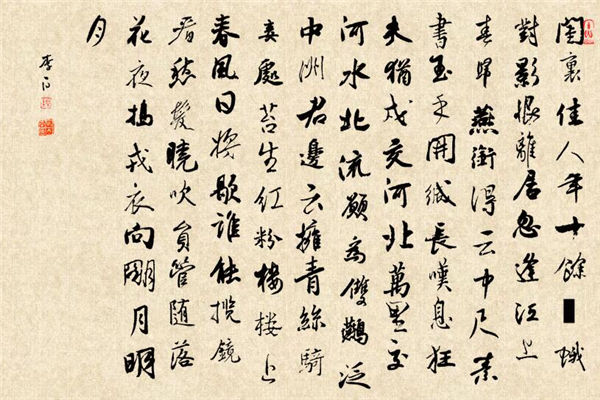 閨裏佳人年十餘■蛾
對影恨離居忽逢江上
春歸燕銜得云中尺素
書玉手開緘長嘆息狂
夫猶戍交河北萬里交
河水北流願為雙鷰泛
中洲君邊云擁青絲騎
妾處苔生紅粉樓樓上
春風日將歇誰能攬鏡
看愁髮曉吹員管隨落
花夜搗戎衣向朙月明
月
李白